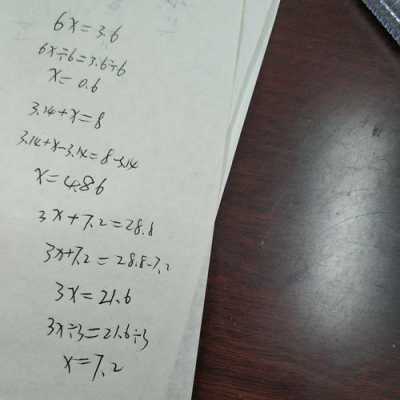 6x=3.6
6x÷6=3.6÷6
x=0.6
3.14+x=8
3.14+x-3.14=8-3.14
x=4.86
3x+7.2=28.8
3x+7.2=28.8-7.2
3x=21.6
3x÷3=21.6÷3
x=7.2